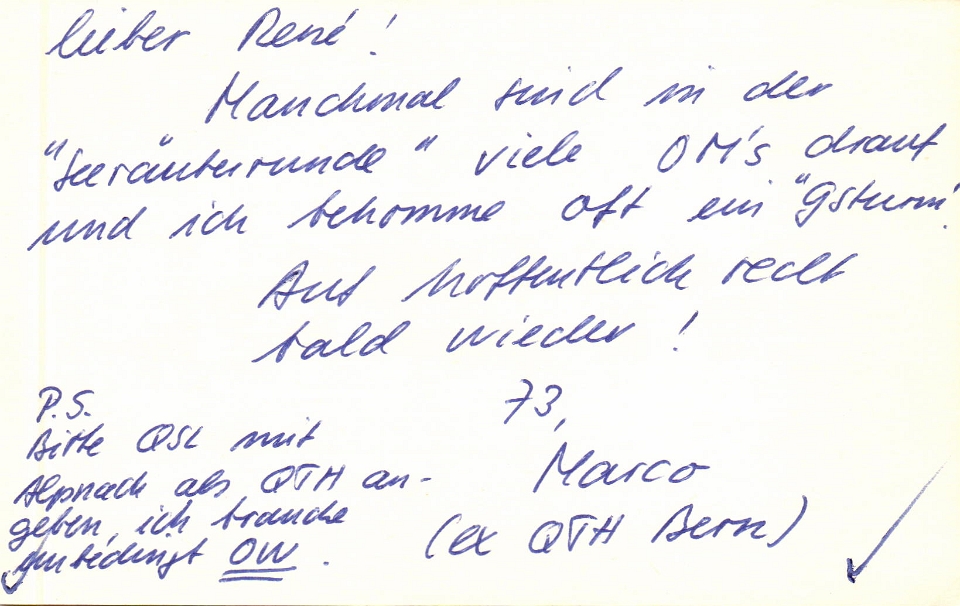 lieber René!
Manchmal sind in der
"Seeräuberrunde" viele OM's drauf
und ich bekomme oft ein "Gsturm".
Auf hoffentlich recht
bald wieder!
73,
Marco
(ex QTH Bern)
P.S.
Bitte QSL mit
Alpnach als QTH an-
geben, ich brauche
unbedingt OW.